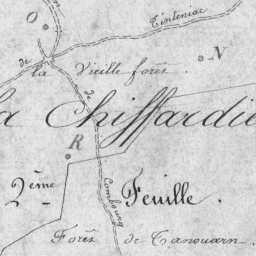 O
Tinteniac
N
de la Vieille forêt.
de
la Chiffardie
R
2ème Feuille.
Combourg
Forêt de Tanouarn